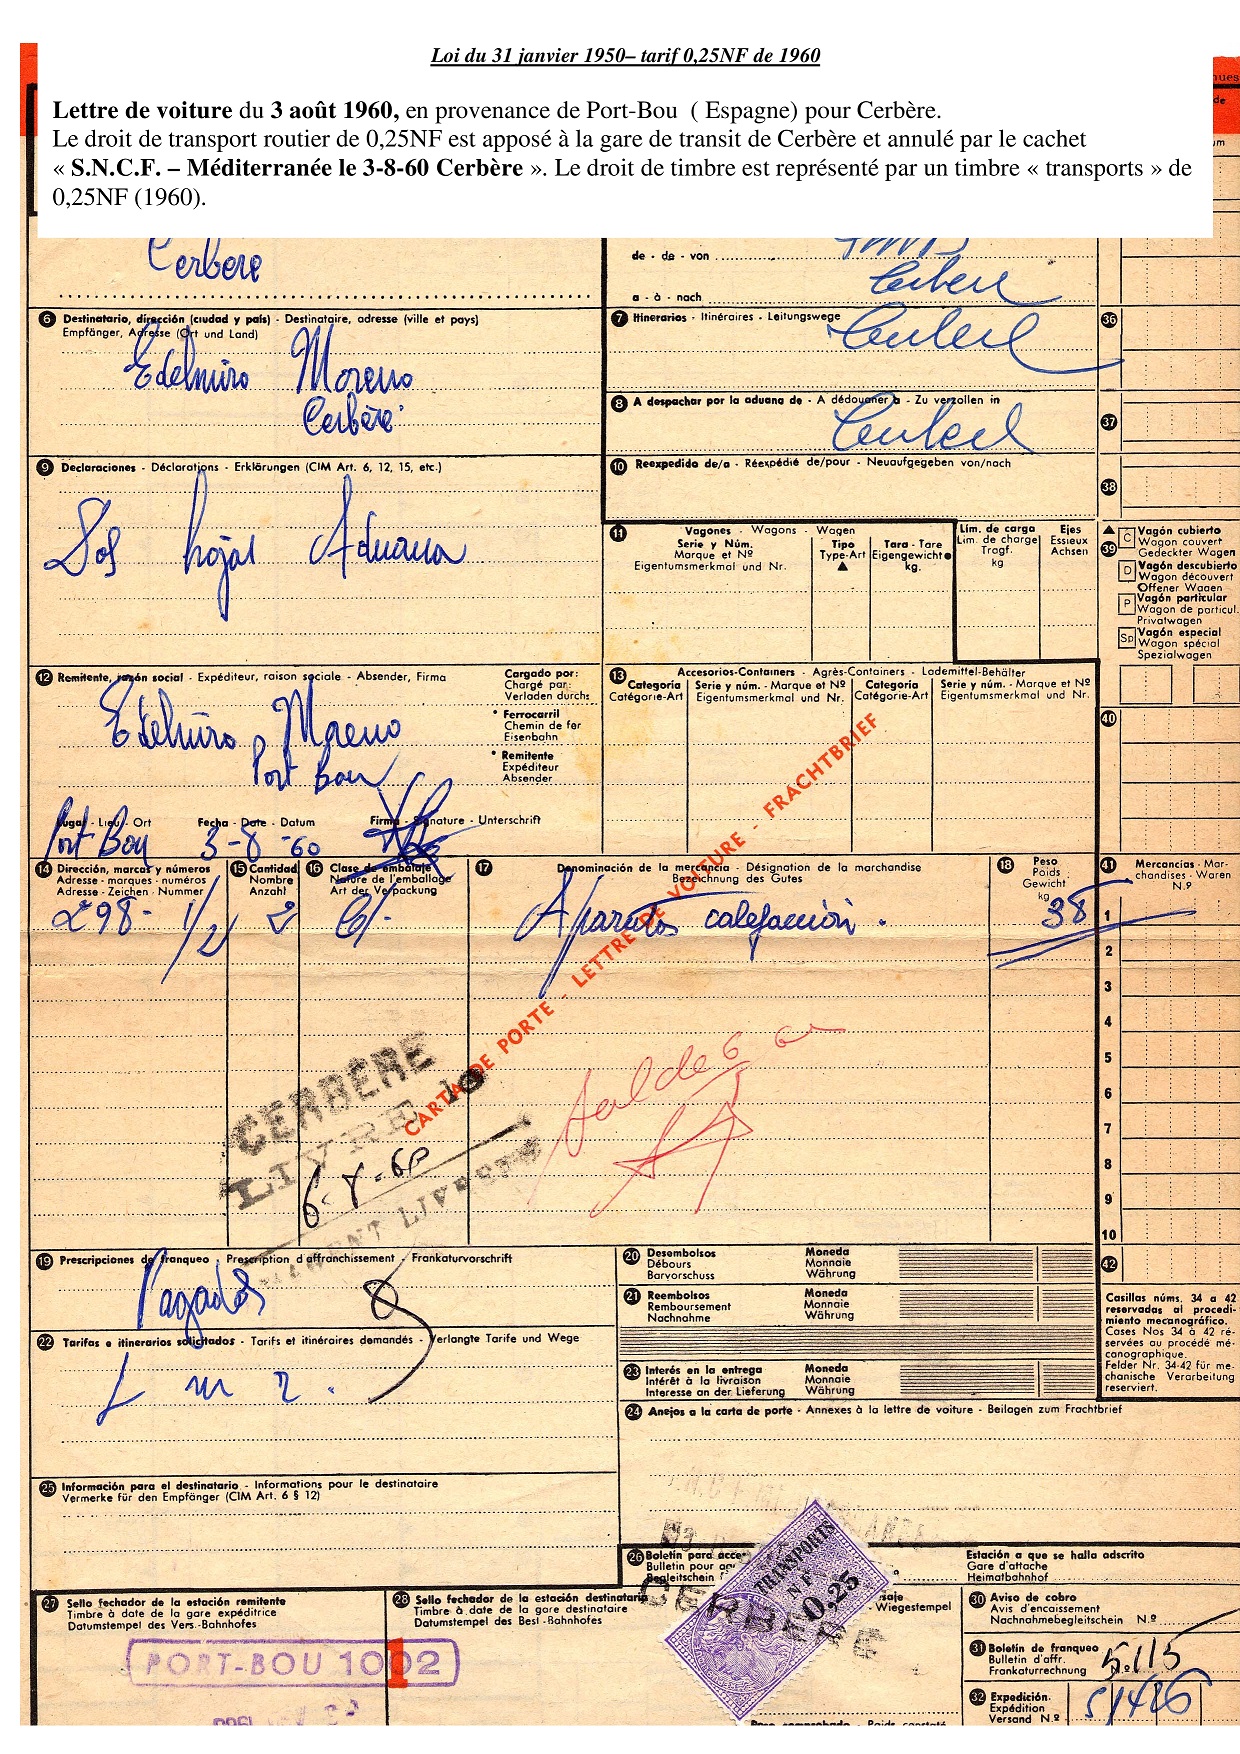 Loi du 31 janvier 1950– tarif 0,25NF de 1960
Lettre de voiture du 3 août 1960, en provenance de Port-Bou ( Espagne) pour Cerbère.
Le droit de transport routier de 0,25NF est apposé à la gare de transit de Cerbère et annulé par le cachet
« S.N.C.F. – Méditerranée le 3-8-60 Cerbère ». Le droit de timbre est représenté par un timbre « transports » de
0,25NF (1960).
Cerbere
de - de - von
a - à - nach
Cerbere
6 Destinatario, dirección (ciudad y país) - Destinataire, adresse (ville et pays)
Empfänger, Adresse (Ort und Land)
Edelmiro Moreno
Cerbère
7 Itinerarios - Itinéraires - Leitungswege
Cerbere
36
8 A despachar por la aduana de - A dédouaner à - Zu verzollen in
Cerbere
37
9 Declaraciones - Déclarations - Erklärungen (CIM Art. 6, 12, 15, etc.)
Dos hojas Aduana
10 Reexpedido de/a - Réexpédié de/pour - Neuaufgegeben von/nach
38
11 Vagones - Wagons - Wagen
Serie y Núm.
Marque et Nº
Eigentumsmerkmal und Nr.
Tipo
Type-Art
Tara - Tare
Eigengewicht
kg.
Lím. de carga
Lim. de charge
Tragf.
kg
Ejes
Essieux
Achsen
39
C Vagón cubierto
Wagon couvert
Gedeckter Wagen
D Vagón descubierto
Wagon découvert
Offener Wagen
P Vagón particular
Wagon de particul.
Privatwagen
Sp Vagón especial
Wagon spécial
Spezialwagen
12 Remitente, razón social - Expéditeur, raison sociale - Absender, Firma
Cargado por:
Chargé par:
Verladen durchs
* Ferrocarril
Chemin de fer
Eisenbahn
* Remitente
Expéditeur
Absender
Edelmiro Moreno
Port Bou
Lugar - Lieu - Ort
Fecha - Date - Datum
Firma - Signature - Unterschrift
Port-Bou 3-8-60
13 Accesorios-Containers - Agrès-Containers - Lademittel-Behälter
Categoría
Catégorie-Art
Serie y núm. - Marque et Nº
Eigentumsmerkmal und Nr.
Categoría
Catégorie-Art
Serie y núm. - Marque et Nº
Eigentumsmerkmal und Nr.
40
CARTA DE PORTE - LETTRE DE VOITURE - FRACHTBRIEF
14 Dirección, marcas y números
Adresse - marques - numéros
Adresse - Zeichen - Nummer
15 Cantidad
Nombre
Anzahl
16 Clase de embalaje
Nature de l'emballage
Art der Verpackung
17 Denominación de la mercancía - Désignation de la marchandise
Bezeichnung des Gutes
18 Peso
Poids
Gewicht
kg
41 Mercancías - Mar-
chandises - Waren
N.º
298- 1/2 2 C/- Aparatos calefacción. 38
1
2
3
4
5
6
7
8
9
10
CERBÈRE
LIVRE
6-8-60
19 Prescripciones de franqueo - Prescription d'affranchissement - Frankaturvorschrift
Pagados
20 Desembolsos
Débours
Barvorschuss
Moneda
Monnaie
Währung
42
21 Reembolsos
Remboursement
Nachnahme
Moneda
Monnaie
Währung
Casillas núms. 34 a 42
reservadas al procedi-
miento mecanográfico.
Cases Nos 34 à 42 ré-
servées au procédé mé-
canographique.
Felder Nr. 34-42 für me-
chanische Verarbeitung
reserviert.
22 Tarifas e itinerarios solicitados - Tarifs et itinéraires demandés - Verlangte Tarife und Wege
23 Interés en la entrega
Intérêt à la livraison
Interesse an der Lieferung
Moneda
Monnaie
Währung
24 Anejos a la carta de porte - Annexes à la lettre de voiture - Beilagen zum Frachtbrief
25 Información para el destinatario - Informations pour le destinataire
Vermerke für den Empfänger (CIM Art. 6 § 12)
26 Boletín para
Bulletin pour
Begleitschein
Estación a que se halla adscrito
Gare d'attache
Heimatbahnhof
TRANSPORTS
NF
0,25
CERBERE
Wiegestempel
27 Sello fechador de la estación remitente
Timbre à date de la gare expéditrice
Datumstempel des Vers.-Bahnhofes
28 Sello fechador de la estación destinataria
Timbre à date de la gare destinataire
Datumstempel des Best.-Bahnhofes
30 Aviso de cobro
Avis d'encaissement
Nachnahmebegleitschein N.º
31 Boletín de franqueo
Bulletin d'affr.
Frankaturrechnung Nº
5115
PORT-BOU 1002
32 Expedición
Expédition
Versand N.º
51426